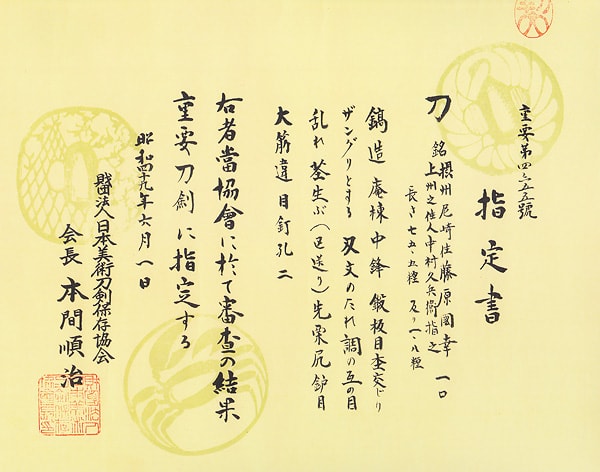 重要第四六五五號
指定書
刀 銘 摂州尼崎住藤原國幸 一口
上州之住人中村久兵衛指之
長さ七五・五糎 反り一・八糎
鎬造 庵棟 中鋒 鍛板目杢交じり
ザングリとする 刃文のたれ調の互の目
乱れ 茎生ぶ(区送り)先栗尻 鑢目
大筋違 目釘孔二
右者當協會に於て審査の結果
重要刀劍に指定する
昭和四十九年六月一日
財団法人日本美術刀劍保存協会
会長 本間順治